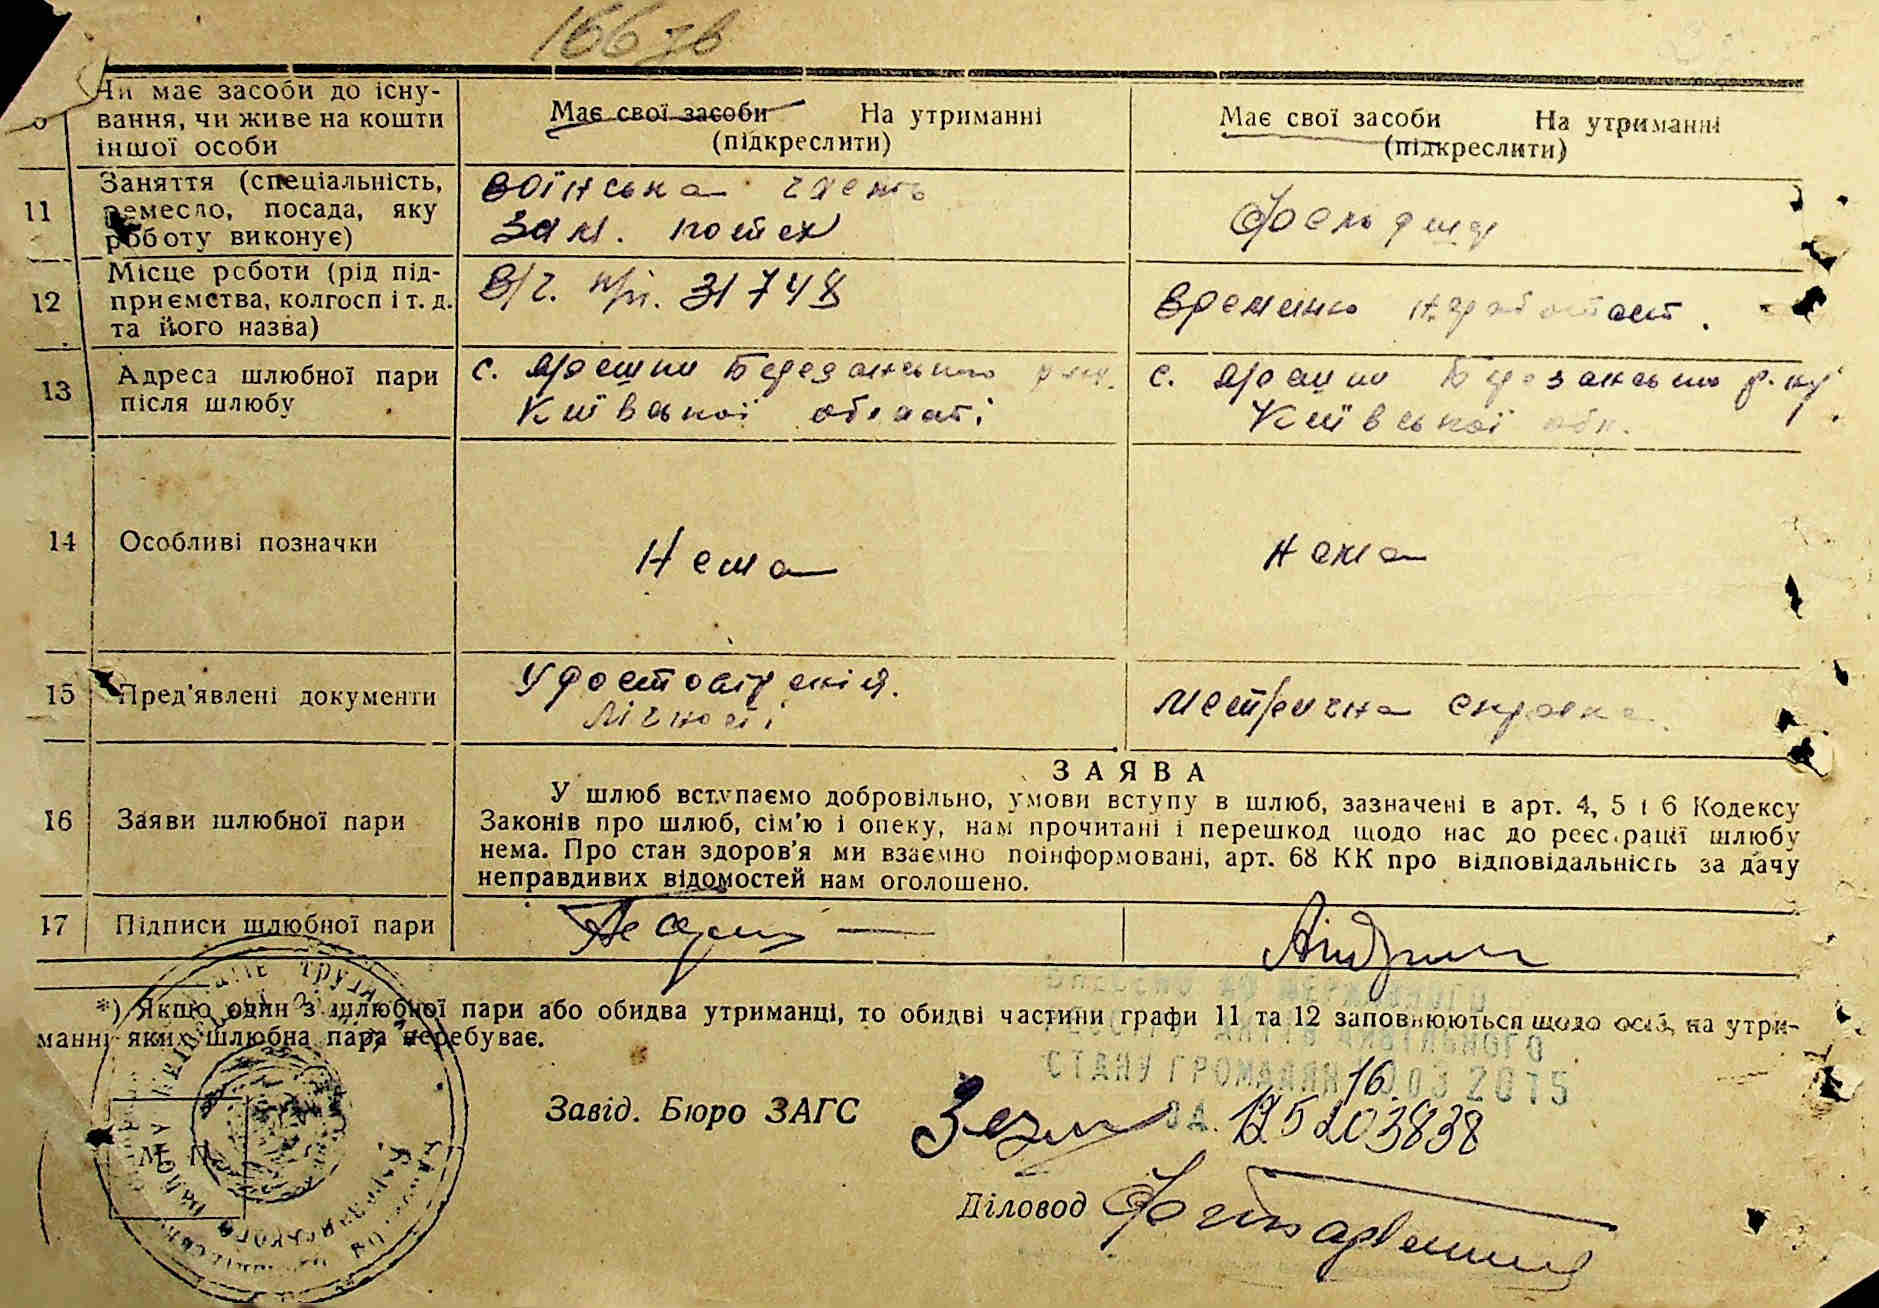 166 зв
Чи має засоби до існу-
вання, чи живе на кошти
іншої особи
Має свої засоби На утриманні
(підкреслити)
Має свої засоби На утриманні
(підкреслити)
11
Заняття (спеціальність,
ремесло, посада, яку
роботу виконує)
воїнська часть
зам.
Фельдшер
12
Місце роботи (рід під-
приємства, колгосп і т. д.
та його назва)
в/ч. п/п. 31748
временно
13
Адреса шлюбної пари
після шлюбу
с. Ярешки Березанського
Київської області
с. Ярешки Березанського р-ну
Київської обл.
14
Особливі позначки
Нема
Нема
15
Пред'явлені документи
Удостовіренія
лічності
метрична справка
16
Заяви шлюбної пари
ЗАЯВА
У шлюб вступаємо добровільно, умови вступу в шлюб, зазначені в арт. 4, 5 і 6 Кодексу
Законів про шлюб, сім'ю і опеку, нам прочитані і перешкод щодо нас до реєстрації шлюбу
нема. Про стан здоров'я ми взаємно поінформовані, арт. 68 КК про відповідальність за дачу
неправдивих відомостей нам оголошено.
17
Підписи шлюбної пари
*) Якщо один з шлюбної пари або обидва утриманці, то обидві частини графи 11 та 12 заповнюються щодо осіб, на утри-
манні яких шлюбна пара перебуває.
ВНЕСЕНО ДО ДЕРЖАВНОГО
РЕЄСТРУ АКТІВ ЦИВІЛЬНОГО
СТАНУ ГРОМАДЯН 16.03.2015
Завід. Бюро ЗАГС
М П
Діловод